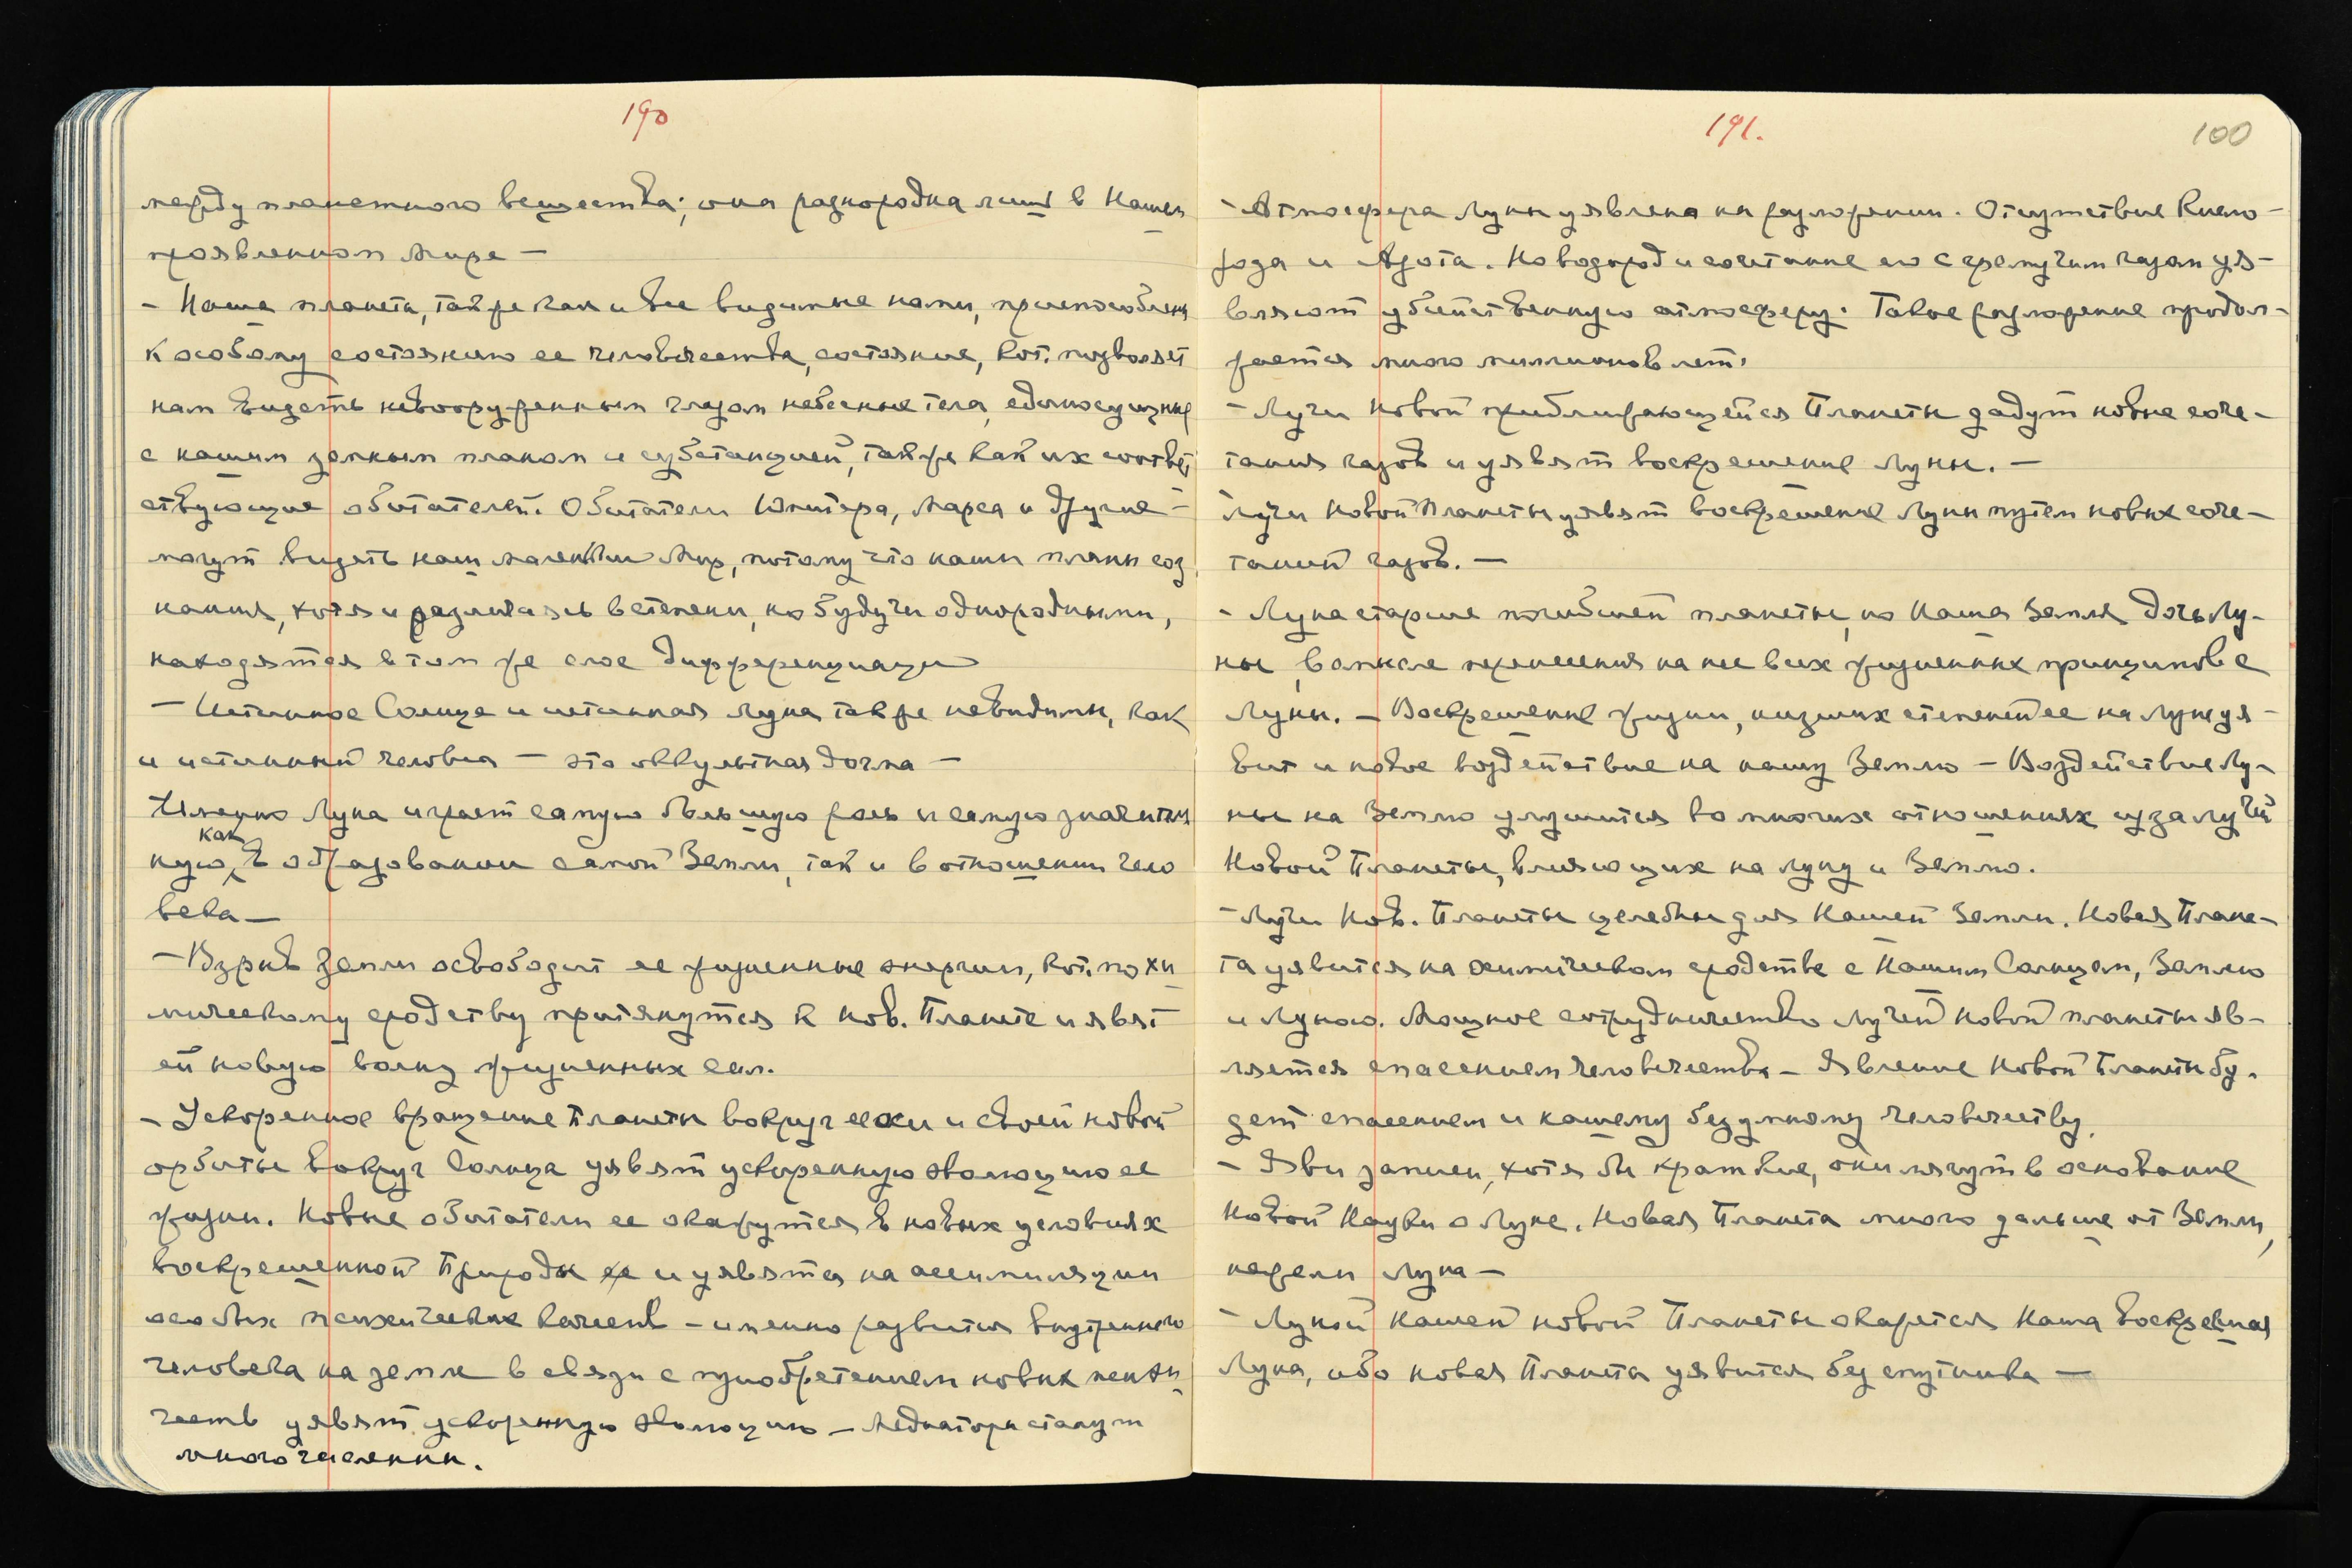 190
между планетного вещества; она разнородна лишь в Нашем
проявленном Мире —
— Наша планета, так же как и все видимые нами, приспособлена
к особому состоянию ее человечества, состояние, кот. позволяет
нам видеть невооруженным глазом небесные тела, единосущные
с нашим земным планом и субстанцией, так же как их соответ
ствующие обитателей. Обитатели Юпитера, Марса и другие —
могут видеть наш маленький Мир, потому что наши планы соз
нания, хотя и различаясь в степени, но будучи однородными,
находятся в том же слое дифференциации
— Истинное Солнце и истинная Луна так же невидимы, как
и истинный человек — это оккультная догма —
Именно Луна играет самую большую роль и самую значитель
как
ную, в образовании самой Земли, так и в отношении чело
века —
— Взрыв Земли освободит ее жизненные энергии, кот. по хи
мическому сродству притянутся к нов. Планете и явят
ей новую волну жизненных сил.
— Ускоренное вращение Планеты вокруг ее оси и своей новой
орбиты вокруг Солнца уявят ускоренную эволюцию ее
жизни. Новые обитатели ее окажутся в новых условиях
воскрешенной Природы ее и уявятся на ассимиляции
особых психических качеств — именно развития внутреннего
человека на земле в связи с приобретением новых психи
честв уявят ускоренную эволюцию — Медиаторы станут
многочисленны.
191.
100
— Атмосфера Луны уявлена на разложении. Отсутствие Кисло-
рода и Азота. Но водород и сочетание его с гремучим газом уя-
вляют убийственную атмосферу. Такое разложение продол-
жается много миллионов лет.
— Лучи Новой приближающейся Планеты дадут новые соче-
тания газов и уявят воскрешение Луны. —
— Лучи Новой Планеты уявят воскрешение Луны путем новых соче-
таний газов. —
— Луна старше погибшей планеты, но Наша Земля дочь Лу-
ны, в смысле перенесения на нее всех жизненных принципов с
Луны. — Воскрешение жизни, низших степеней ее на Луне уя-
вит и новое воздействие на нашу Землю — Воздействие Лу-
ны на Землю улучшится во многих отношениях из за лучей
Новой Планеты, влияющих на Луну и Землю.
— Лучи Нов. Планеты целебны для Нашей Земли. Новая Плане-
та уявится на химическом сродстве с Нашим Солнцем, Землею
и Луною. Мощное сотрудничество лучей новой планеты яв-
ляется спасением человечества — Явление Новой Планеты бу-
дет спасением и нашему безумному человечеству.
— Яви записи, хотя бы краткие, они лягут в основание
Новой Науки о Луне. Новая Планета много дальше от Земли,
нежели Луна —
— Луной нашей новой Планеты окажется Наша воскресшая
Луна, ибо новая Планета уявится без спутника —